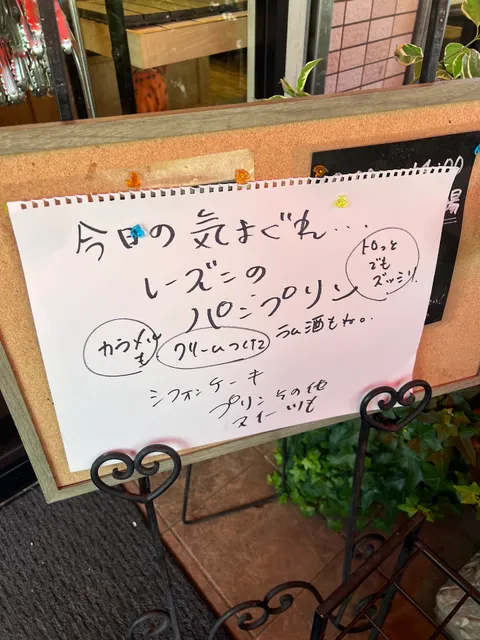 今日の気まぐれ...
レーズンの
パンプリン
トロっと
でも
ズッシリ
カラメル
も
クリームつけて
ラム酒もね。
シフォンケーキ
プリン その他
スイーツも